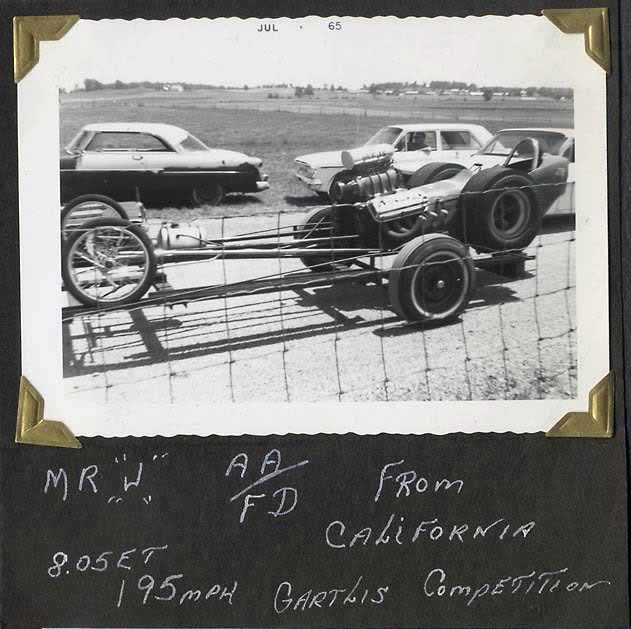 JUL • 65
MR "W" AA/FD FROM
CALIFORNIA
8.05 ET
195 MPH GARTLIS COMPETITION